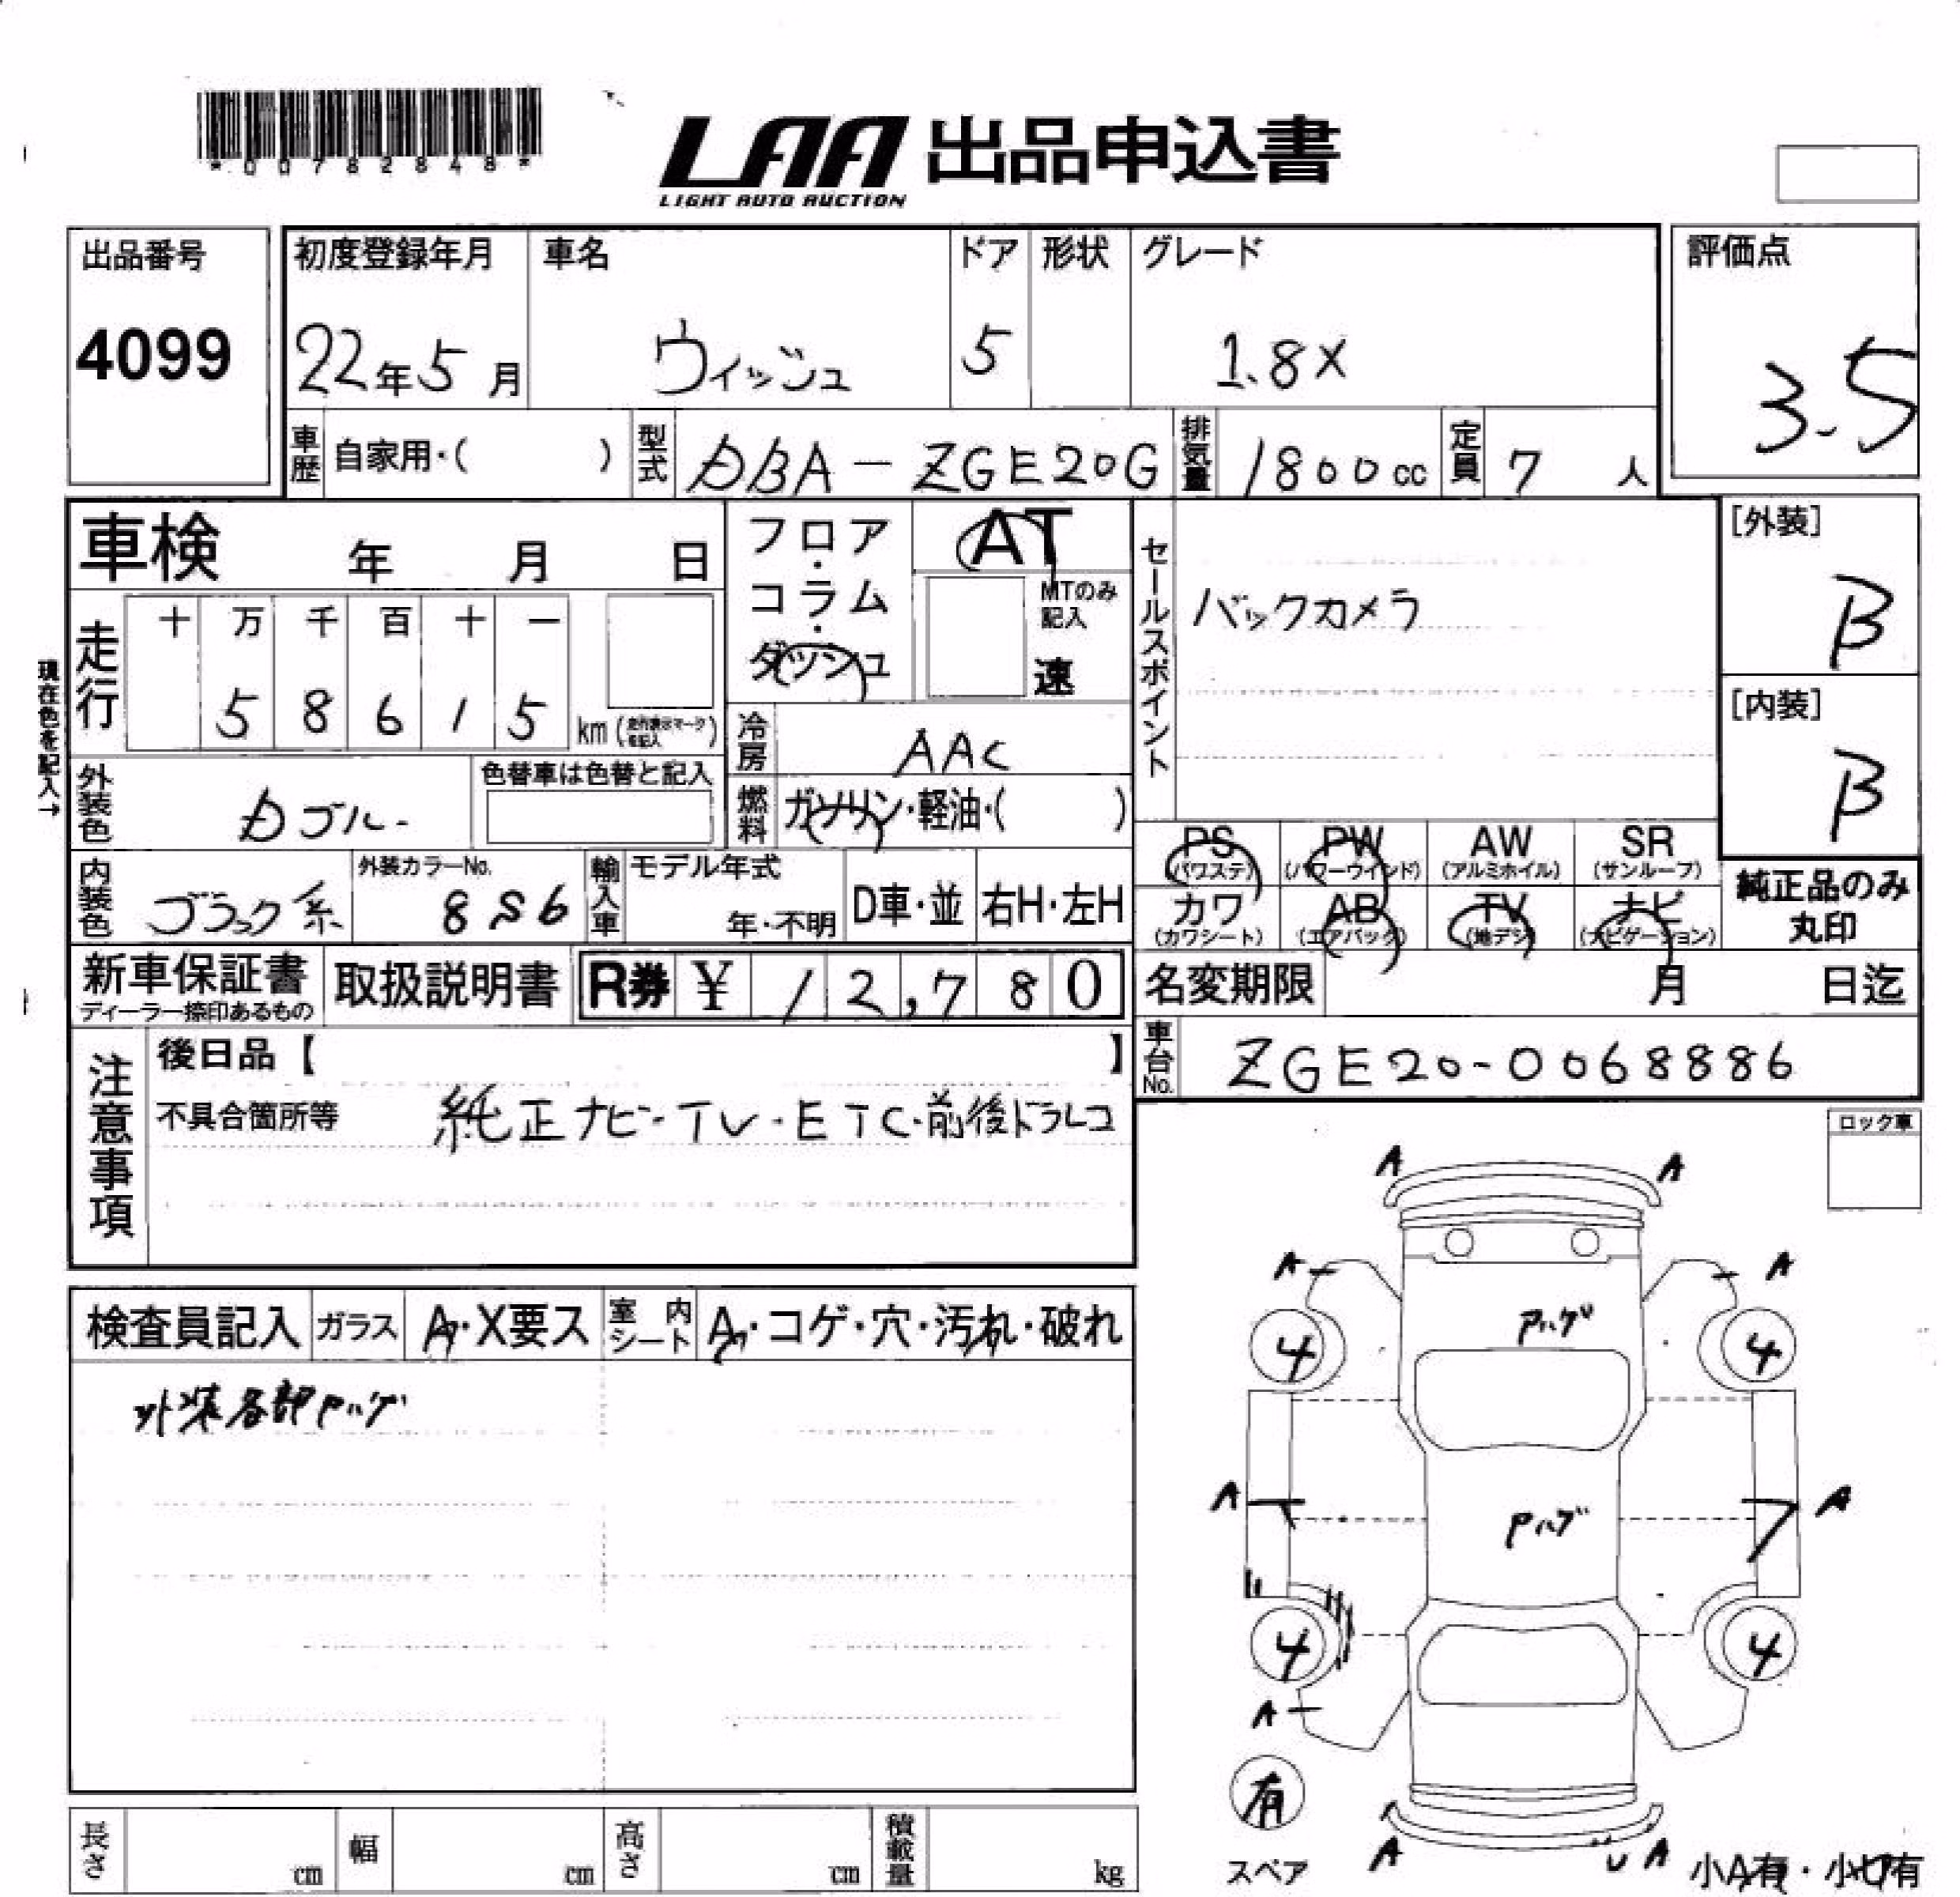 *00782848*
LAA 出品申込書
LIGHT AUTO AUCTION
出品番号
4099
初度登録年月
22年5月
車名
ウィッシュ
ドア
5
形状
グレード
1.8X
評価点
3.5
車歴 自家用・( )
型式 DBA-ZGE20G
排気量 1800cc
定員 7人
車検 年 月 日
フロア・コラム・ダッシュ
AT
MTのみ記入
速
セールスポイント
バックカメラ
[外装]
B
[内装]
B
現在色を記入→
走行
十 万 千 百 十 一
5 8 6 1 5 km
冷房 AAC
外装色
色替車は色替と記入
燃料 ガソリン・軽油・( )
内装色 ブラック系
外装カラーNo.
8S6
輸入車 モデル年式
年・不明
D車・並 右H・左H
PS (パワステ)
PW (パワーウインド)
AW (アルミホイル)
SR (サンルーフ)
カワ (カワシート)
AB (エアバック)
TV (地デジ)
ナビ (ナビゲーション)
純正品のみ丸印
新車保証書
ディーラー捺印あるもの
取扱説明書
R券 ¥12,780
名変期限 月 日迄
車台No. ZGE20-0068886
注意事項
後日品【 】
不具合箇所等 純正ナビ・TV・ETC・前後ドラレコ
ロック車
検査員記入
ガラス A・X要ス
室内シート A・コゲ・穴・汚れ・破れ
外装各部アハゲ
A A
A A
アハゲ
4 4
アハゲ
A A
4 4
A
有
スペア
A U A
小A有・小U有
長さ cm
幅 cm
高さ cm
積載量 kg